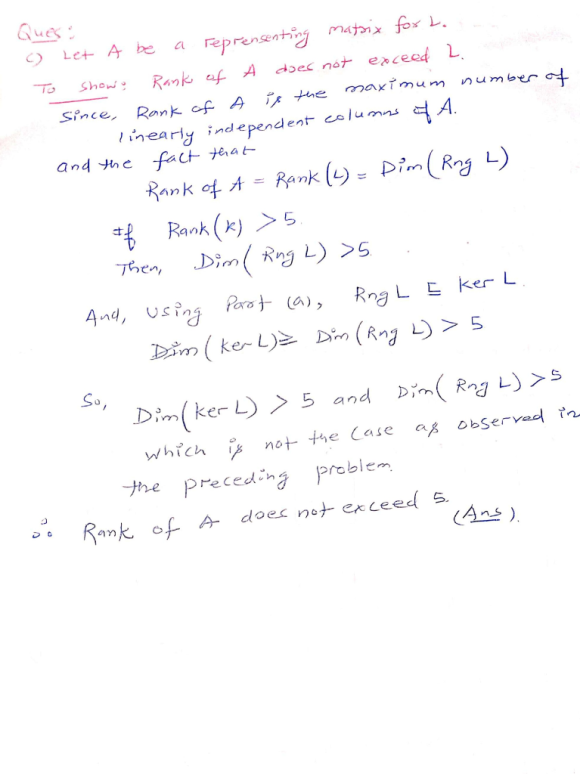 Ques:
c) Let A be a reprensenting matrix for L.
To show: Rank of A does not exceed L.
Since, Rank of A is the maximum number of
linearly independent columns of A.
and the fact that
Rank of A = Rank (L) = Dim (Rng L)
If Rank (k) > 5.
Then, Dim ( Rng L) > 5
And, using Part (a), Rng L ⊑ ker L
Dim ( ker L) ≥ Dim (Rng L) > 5
So, Dim (ker L) > 5 and Dim ( Rng L) > 5
which is not the case as observed in
the preceding problem.
∴ Rank of A does not exceed 5. (Ans).